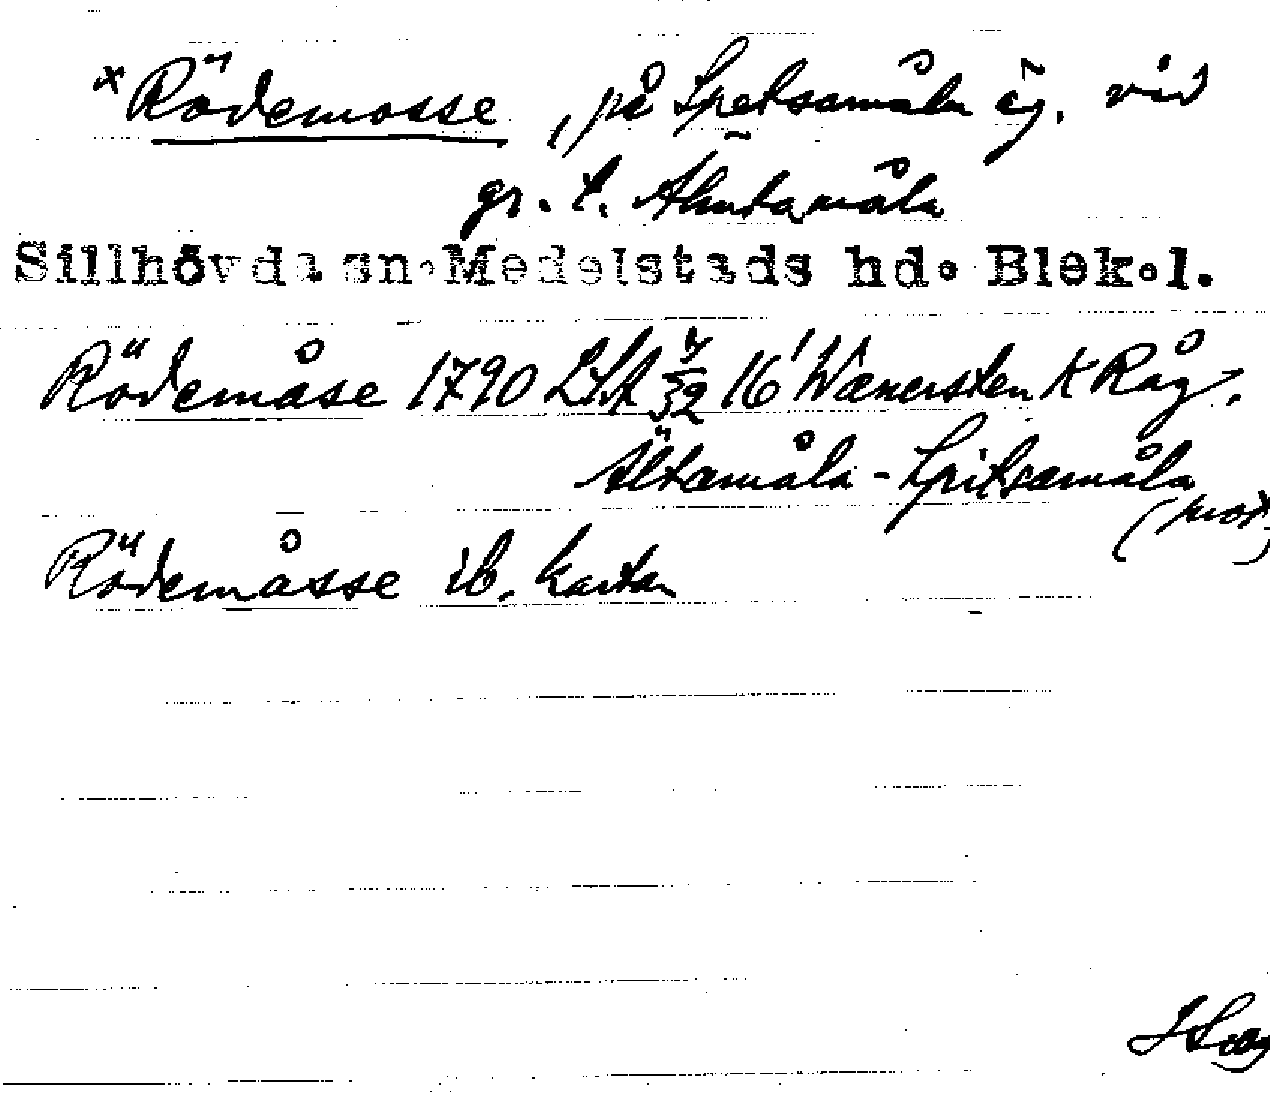 × Rödemosse, på Spetsamåla äg. vid
gr. t.
Sillhövda sn. Medelstads hd. Blek. l.
Rödemåse 1790 LSA 16 Wænersten K Råg,
Ältæmåla - Spitsæmåla
Rödemåsse ib. kartan